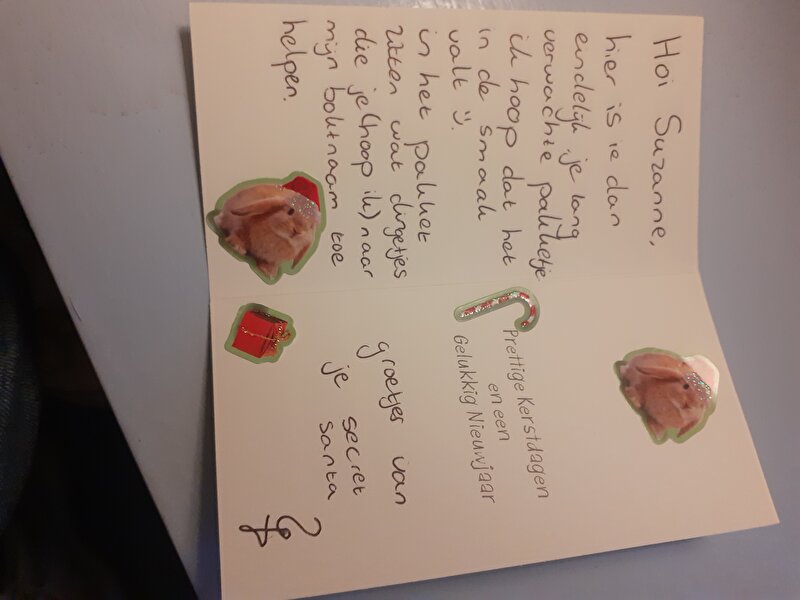 Hoi Suzanne,
hier is ie dan
eindelijk je lang
verwachte pakketje
ik hoop dat het
in de smaak
valt :).
in het pakket
zitten wat dingetjes
die je (hoop ik) naar
mijn boktnaam toe
helpen.
Prettige Kerstdagen
en een
Gelukkig Nieuwjaar
groetjes van
je secret
santa